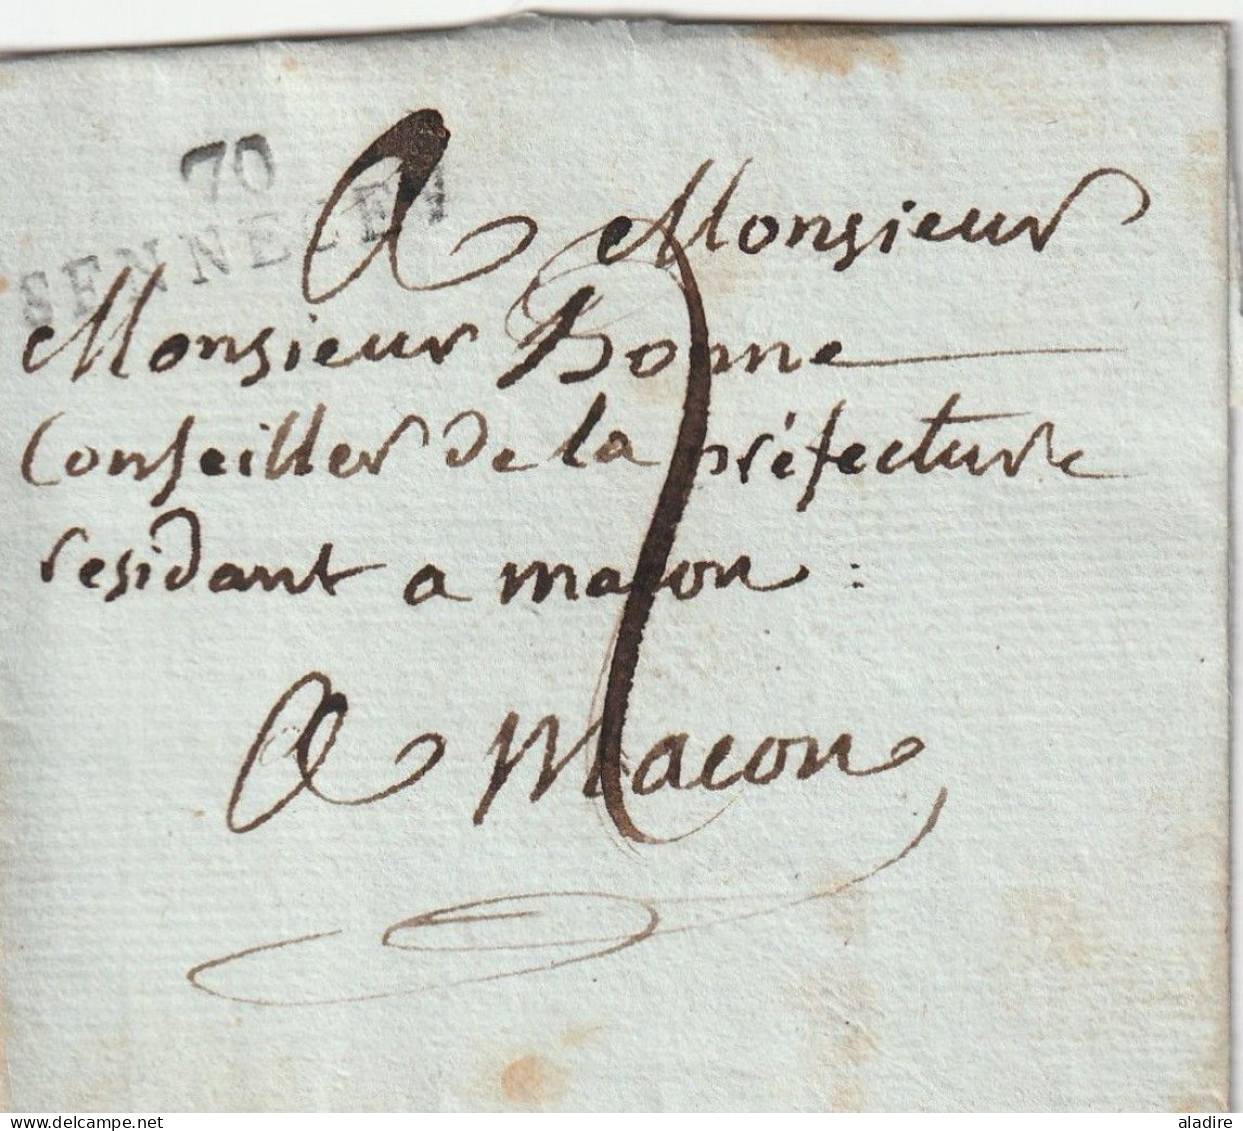 70
SENNECEY
A Monsieur
Monsieur Bonne
Conseiller de la préfecture
residant a macon :
A Macon
aladire
delcampe.net